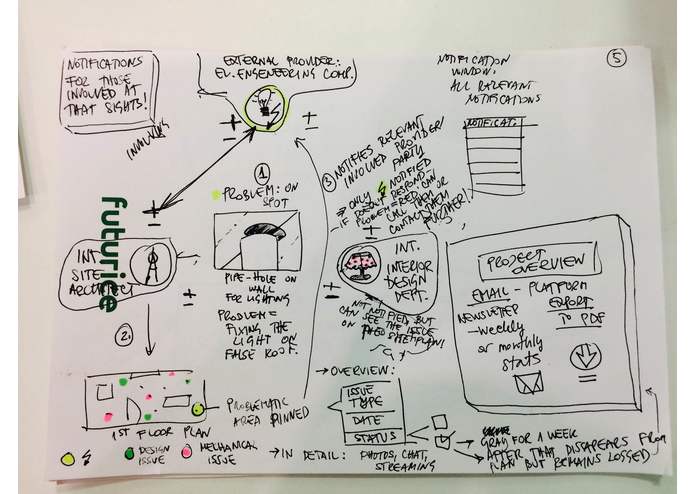 NOTIFICATIONS
FOR THOSE
INVOLVED AT
THAT SIGHTS!
EXTERNAL PROVIDER:
EL. ENGENEERING COMP.
INVOLVING
NOTIFICATION
WINDOW:
ALL RELEVANT
NOTIFICATIONS
5
NOTIFICAT.
1
PROBLEM: ON
SPOT
PIPE-HOLE ON
WALL
FOR LIGHTING
PROBLEM =
FIXING THE
LIGHT ON
FALSE ROOF.
3 NOTIFIES RELEVANT
INVOLVED PROVIDER/
PARTY
→ ONLY NOTIFIED
DOESN'T RESPOND
IF PROBLEM = RED. OR CAN
CALL THEM OR
CONTACT THEM
FURTHER!
futurice
INT.
SITE
ARCHITECT
INT.
INTERIOR
DESIGN
DEPT.
NOT NOTIFIED BUT
CAN SEE THE ISSUE
ON THE SITEPLAN!
PROJECT
OVERVIEW
EMAIL - PLATFORM
NEWSLETTER
→ weekly
or monthly
stats
EXPORT
TO PDF
2.
PROBLEMATIC
AREA PINNED
1ST FLOOR PLAN
DESIGN
ISSUE
MECHANICAL
ISSUE
→ OVERVIEW:
ISSUE
TYPE
DATE
STATUS
→ GRAY FOR 1 WEEK
→ AFTER THAT DISAPEARS FROM
PLAN BUT REMAINS LOGGED
→ IN DETAIL: PHOTOS, CHAT,
STREAMING